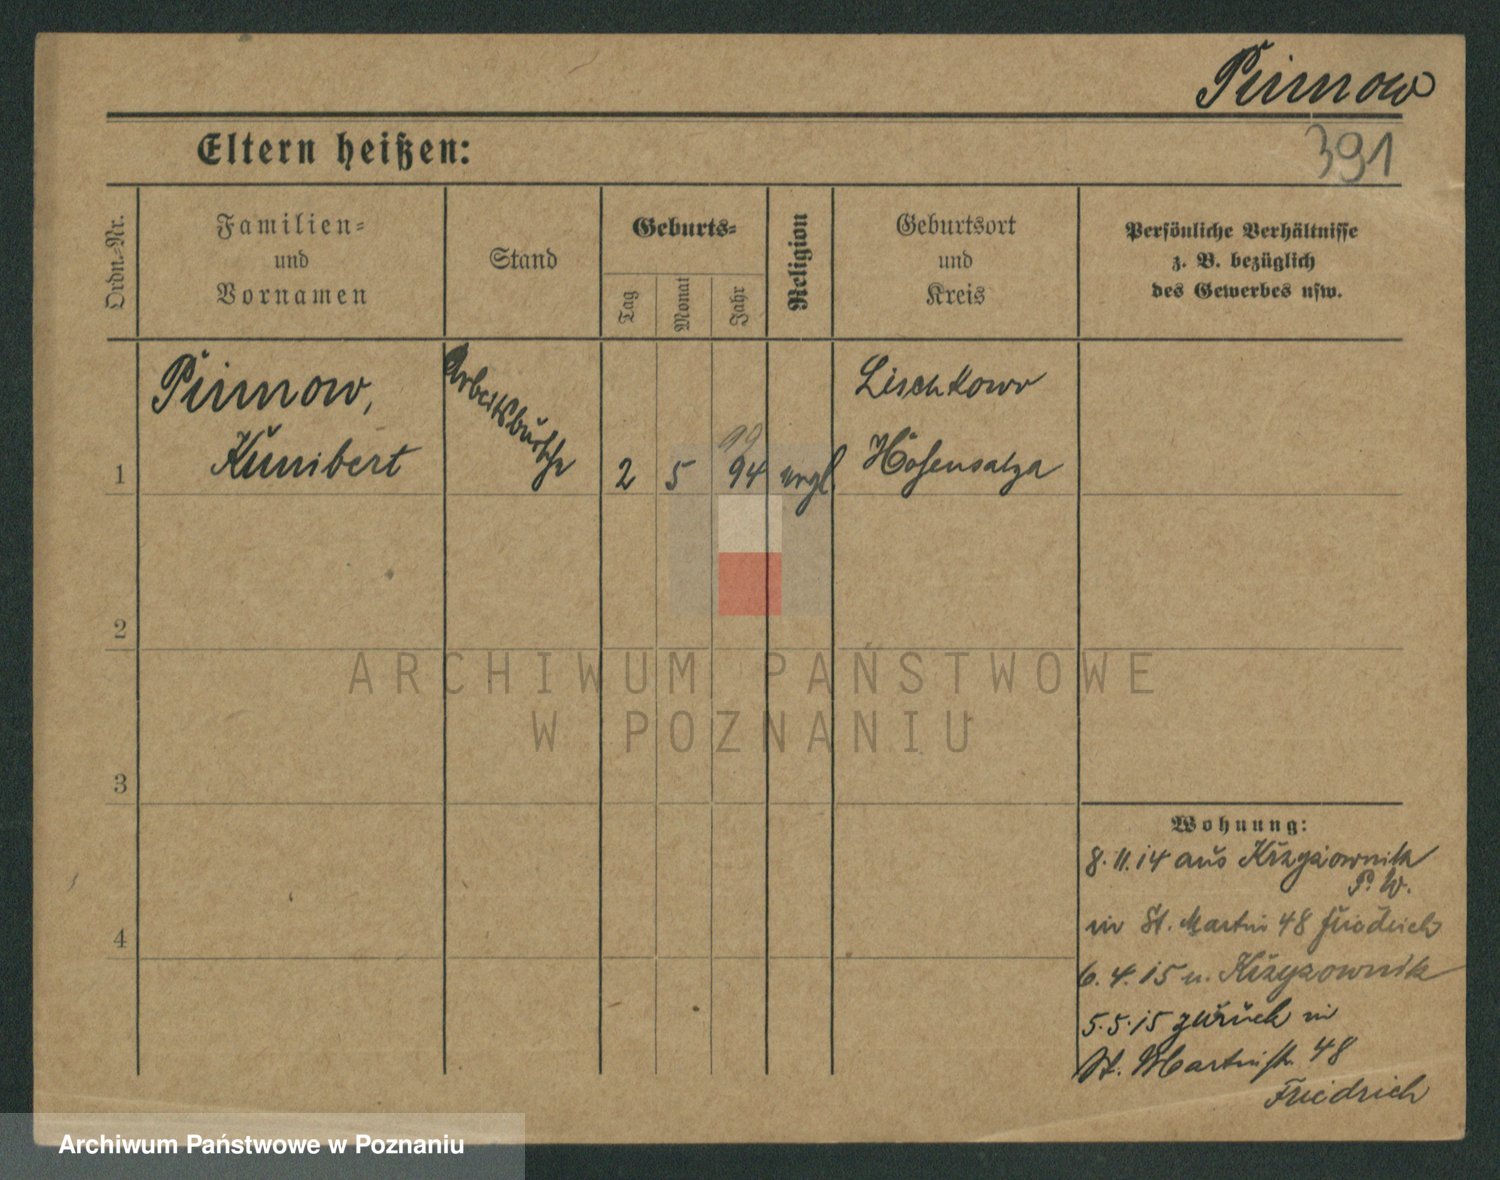 Pirnow
391
Eltern heißen:
Ordn.-Nr.
Familien-
und
Vornamen
Stand
Geburts-
Tag
Monat
Jahr
Religion
Geburtsort
und
Kreis
Persönliche Verhältnisse
z. B. bezüglich
des Gewerbes usw.
Pirnow,
Kunibert
Arbeitsbursche
1
2
5
99
94
evgl.
Lischkowo
Hohensalza
2
3
4
Wohnung:
8.11.14 aus Krzyzownik
P. W.
in St. Martin 48 Friedrich
6.4.15 n. Krzyzownik
5.5.15 zurück in
St. Martinstr. 48
Friedrich
ARCHIWUM PAŃSTWOWE
W POZNANIU
Archiwum Państwowe w Poznaniu